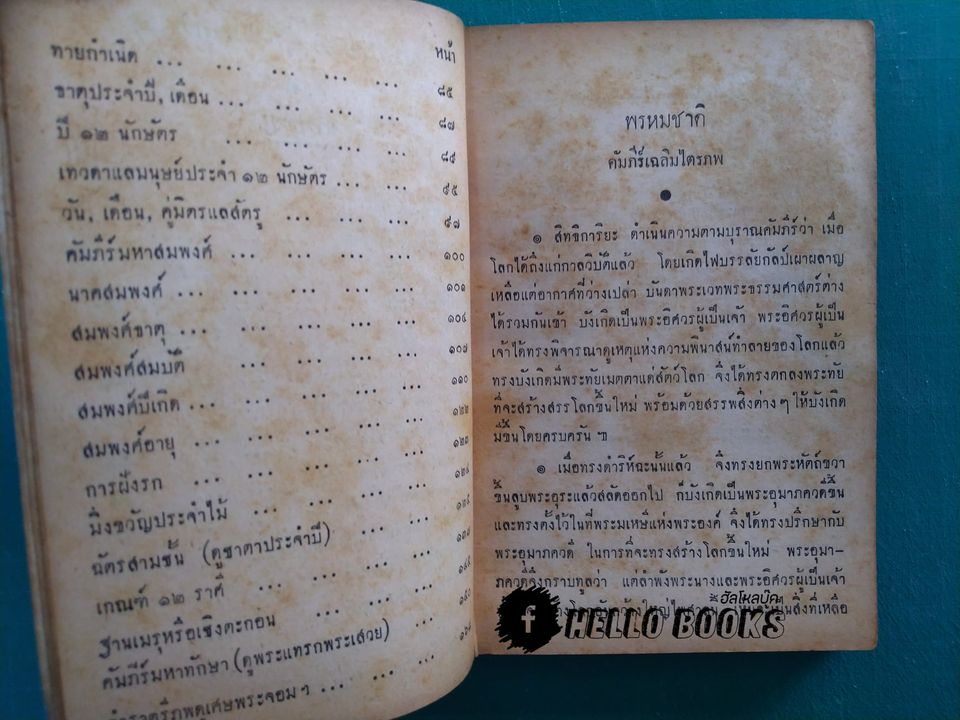 หน้า
ทายกำเนิด ... ... ... ... ... ๘๕
ธาตุประจำปี, เดือน ... ... ... ... ๘๗
ปี ๑๒ นักษัตร ... ... ... ... ๘๙
เทวดาแลมนุษย์ประจำ ๑๒ นักษัตร ... ... ๙๕
วัน, เดือน, คู่มิตรแลสัตรู ... ... ... ๙๗
คัมภีร์มหาสมพงศ์ ... ... ... ... ๑๐๐
นาคสมพงศ์ ... ... ... ... ... ๑๐๑
สมพงศ์ธาตุ ... ... ... ... ... ๑๐๔
สมพงศ์สมบัติ ... ... ... ... ๑๐๗
สมพงศ์ปีเกิด ... ... ... ... ... ๑๑๐
สมพงศ์อายุ ... ... ... ... ... ๑๒๒
การฝังรก ... ... ... ... ... ๑๒๓
มิ่งขวัญประจำไม้ ... ... ... ... ๑๒๔
ฉัตรสามชั้น (ดูชาตาประจำปี) ... ... ...
เกณฑ์ ๑๒ ราศี ... ... ... ...
ฐานเมรุหรือเชิงตะกอน ... ... ...
คัมภีร์มหาทักษา (ดูพระแทรกพระเสวย) ...
พรหมชาติ
คัมภีร์เฉลิมไตรภพ
๑ สิทธิการิยะ ดำเนินความตามบุราณคัมภีร์ว่า เมื่อ
โลกได้ถึงแก่กาลวิบัติแล้ว โดยเกิดไฟบรรลัยกัลป์เผาผลาญ
เหลือแต่อากาศที่ว่างเปล่า บันดาพระเวทพระธรรมศาสตร์ต่าง
ได้รวมกันเข้า บังเกิดเป็นพระอิศวรผู้เป็นเจ้า พระอิศวรผู้เป็น
เจ้าได้ทรงพิจารณาดูเหตุแห่งความพินาสน์ทำลายของโลกแล้ว
ทรงบังเกิดมีพระทัยเมตตาแด่สัตว์โลก จึ่งได้ทรงตกลงพระทัย
ที่จะสร้างสรรโลกขึ้นใหม่ พร้อมด้วยสรรพสิ่งต่าง ๆ ให้บังเกิด
มีขึ้นโดยครบครัน ฯ
๑ เมื่อทรงดำริห์ฉะนั้นแล้ว จึ่งทรงยกพระหัตถ์ขวา
ขึ้นลูบพระอุระแล้วสลัดออกไป ก็บังเกิดเป็นพระอุมาภควดีขึ้น
และทรงตั้งไว้ในที่พระมเหษีแห่งพระองค์ จึ่งได้ทรงปรึกษากับ
พระอุมาภควดี ในการที่จะทรงสร้างโลกขึ้นใหม่ พระอุมา-
ภควดีจึ่งกราบทูลว่า แต่ลำพังพระนางและพระอิศวรผู้เป็นเจ้า
เป็นสิ่งที่เหลือ
ฮัลโหลบุ๊ค
f HELLO BOOKS